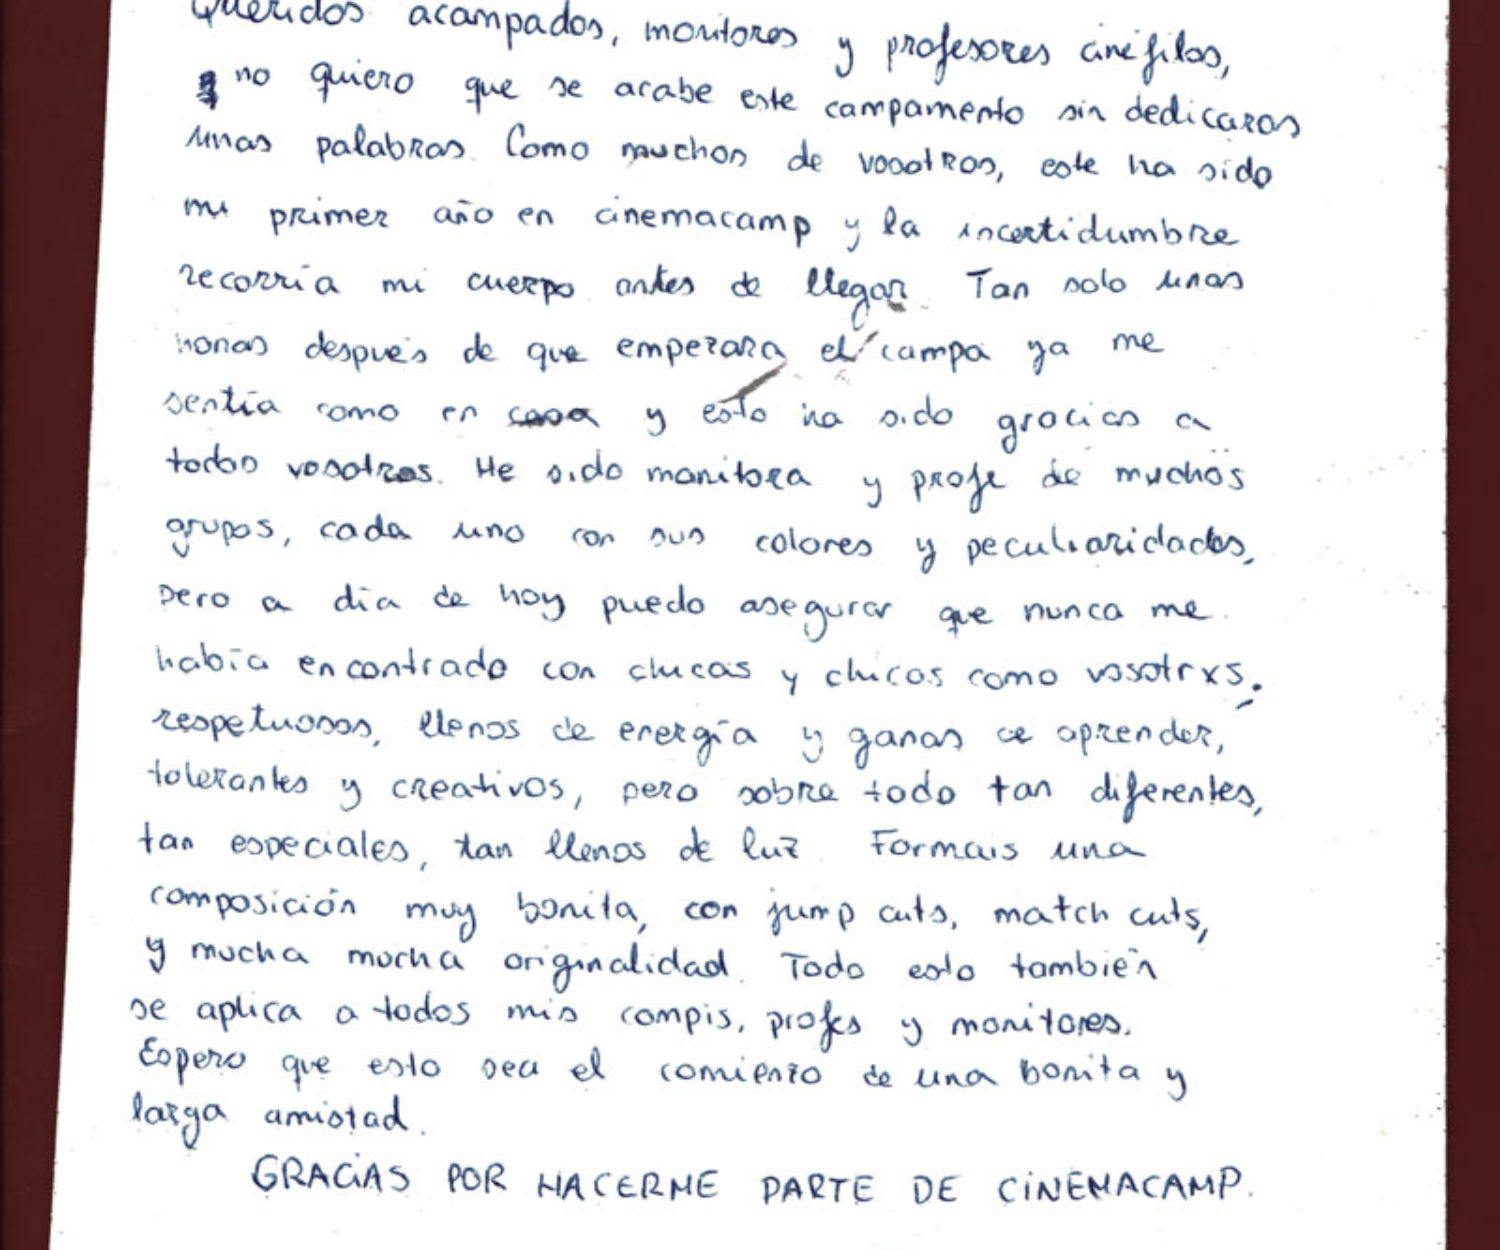 Queridos acampados, monitores y profesores cinéfilos,
no quiero que se acabe este campamento sin dedicaros
unas palabras. Como muchos de vosotros, este ha sido
mi primer año en cinemacamp y la incertidumbre
recorría mi cuerpo antes de llegar. Tan solo unas
horas después de que empezara el campa ya me
sentía como en casa y esto ha sido gracias a
todos vosotros. He sido monitora y profe de muchos
grupos, cada uno con sus colores y peculiaridades,
pero a día de hoy puedo asegurar que nunca me
había encontrado con chicas y chicos como vosotrxs.
respetuosos, llenos de energía y ganas de aprender,
tolerantes y creativos, pero sobre todo tan diferentes,
tan especiales, tan llenos de luz. Formais una
composición muy bonita, con jump cuts, match cuts,
y mucha mucha originalidad. Todo esto también
se aplica a todos mis compis, profes y monitores.
Espero que esto sea el comienzo de una bonita y
larga amistad.
GRACIAS POR HACERME PARTE DE CINEMACAMP.